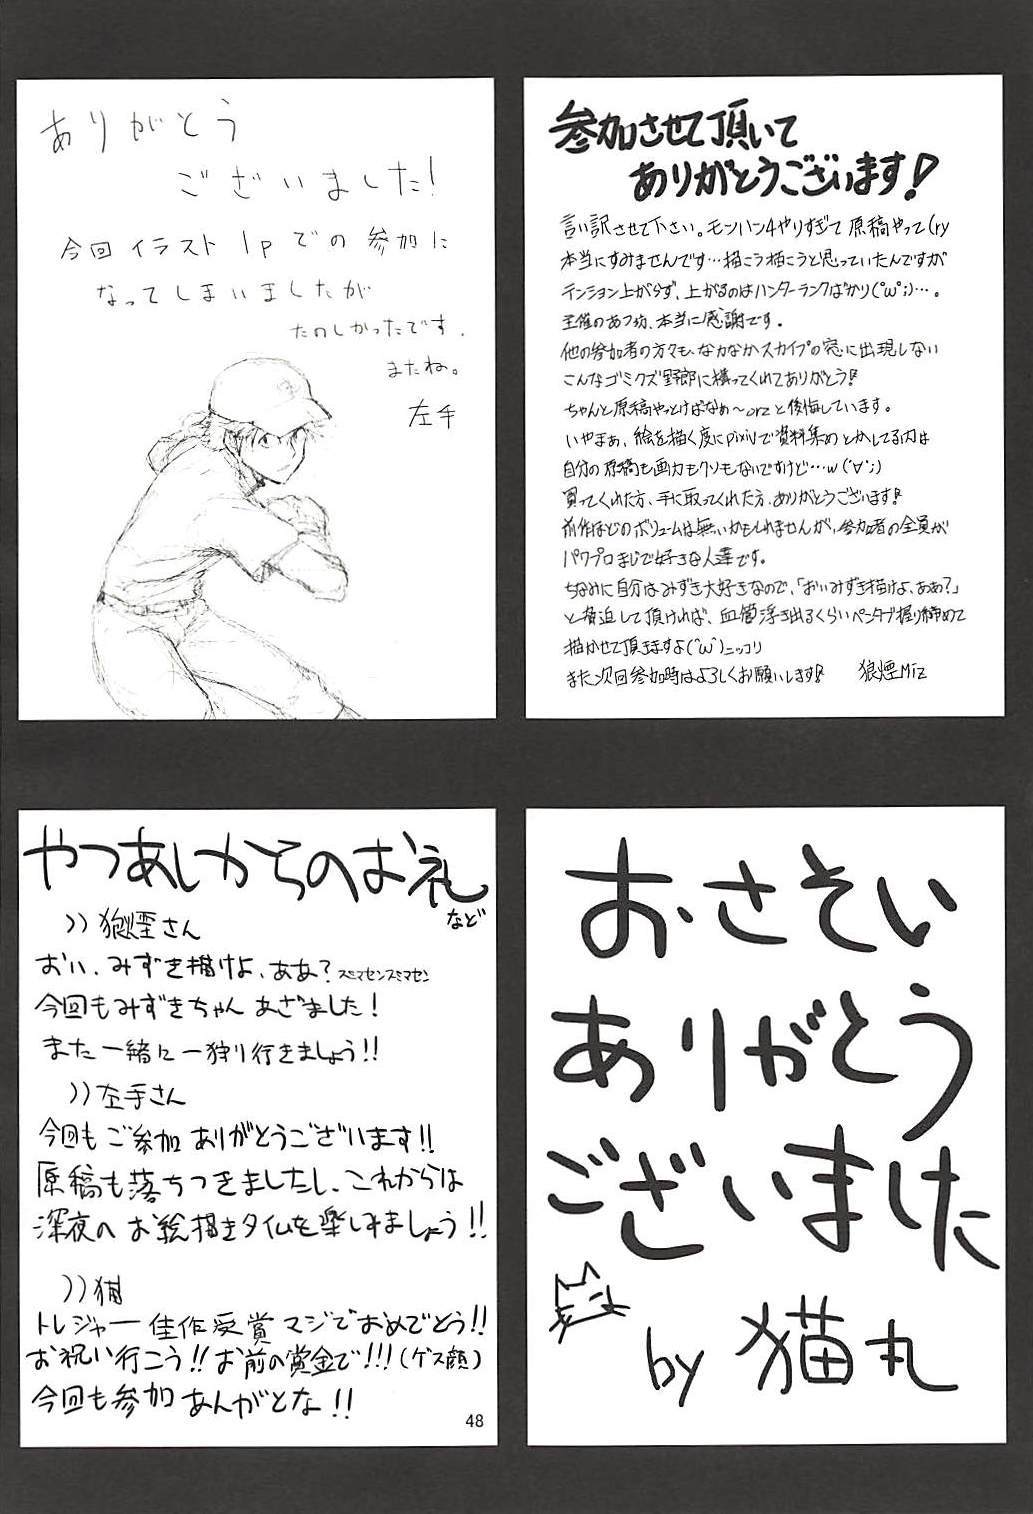 ありがとう
ございました!
今回イラスト1pでの参加に
なってしまいましたが
たのしかったです.
またね。
左手
参加させて頂いて
ありがとうございます!
言い訳させて下さい。モンハン4やりすぎて原稿やって(ry
本当にすみませんです…描こう描こうと思っていたんですが
テンション上がらず、上がるのはハンターランクばかり(゚ω゚;)…。
主催のあつ坊、本当に感謝です。
他の参加者の方々も、なかなかスカイプの窓に出現しない
こんなゴミクズ野郎に構ってくれてありがとう!
ちゃんと原稿やっとけばなぁ~orzと後悔しています。
いやまぁ、絵を描く度にpixivで資料集めとかしてる内は
自分の原稿も画力もクソもないですけど…w(´∀`;)
買ってくれた方、手に取ってくれた方、ありがとうございます!
前作ほどのボリュームは無いかもしれませんが、参加者の全員が
パワプロまじで好きな人達です。
ちなみに自分はみずき大好きなので、「おいみずき描けよ、ああ?」
と脅迫して頂ければ、血管浮き出るくらいペンタブ握り締めて
描かせて頂きますよ(^ω^)ニッコリ
また次回参加時はよろしくお願いします! 狼煙Miz
やつあしからのお礼
など
))狼煙さん
おい、みずき描けよ、ああ?スミマセンスミマセン
今回もみずきちゃん あざました!
また一緒に一狩り行きましょう!!
))左手さん
今回もご参加ありがとうございます!!
原稿も落ちつきましたし、これからは
深夜のお絵描きタイムを楽しみましょう!!
))猫
トレジャー佳作受賞マジでおめでとう!!
お祝い行こう!!お前の賞金で!!!(ゲス顔)
今回も参加あんがとな!!
48
おさそい
ありがとう
ございました
by 猫丸